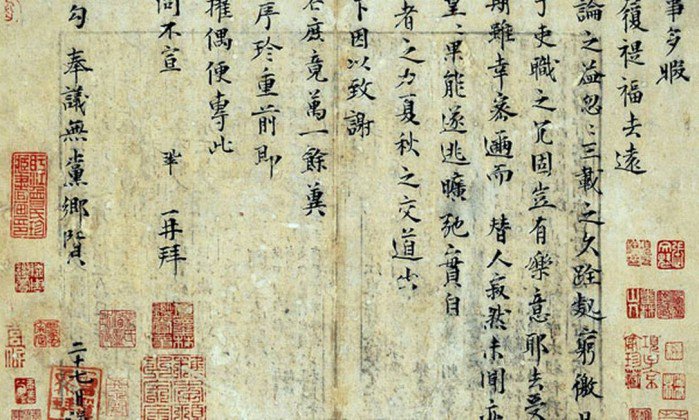 事多暇
履禔福去遠
論之益忽〻三載之久跧處窮徼日
於吏職之冗固豈有樂意耶去受
期雖幸密邇而替人寂然未聞亦
望〻果能遂逃曠弛實自
者之力夏秋之交道出
下因以致謝
右庶竟萬一餘冀
序珍重前即
擢偶便專此
問不宣 鞏 再拜
勾奉議無黨鄉賢 二十七日謹